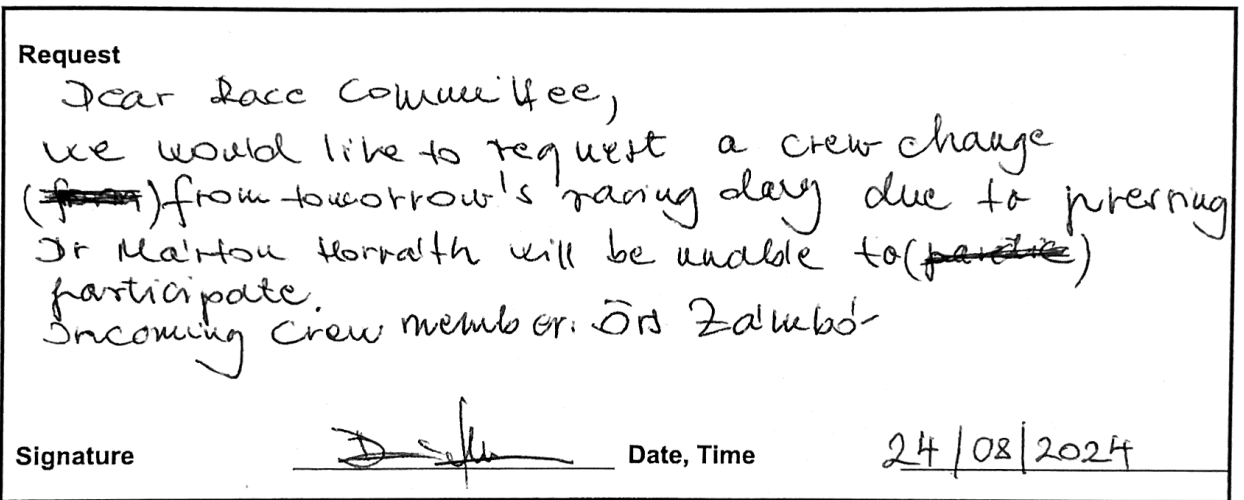 Request
Dear Race Committee,
we would like to request a crew change
(from) from tomorrow's racing day due to pressing
Dr Márton Horváth will be unable to (partic)
participate.
Incoming crew member: Örs Zámbó
Signature Date, Time 24/08/2024